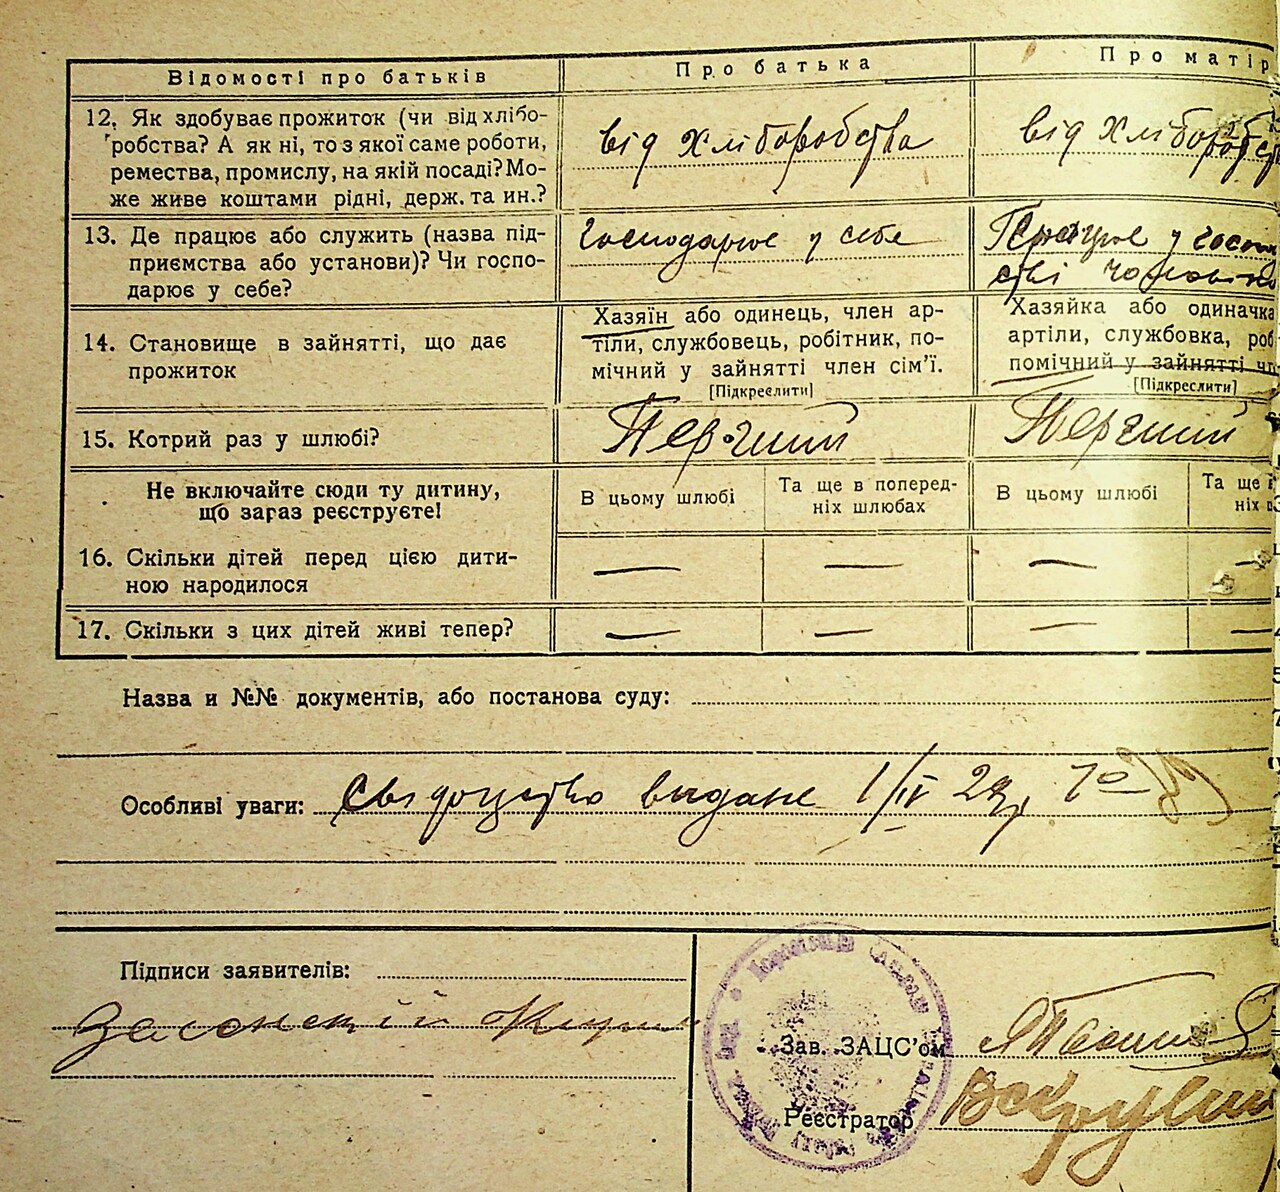 Відомості про батьків
Про батька
Про матір
12. Як здобуває прожиток (чи від хлібо-
робства? А як ні, то з якої саме роботи,
ремества, промислу, на якій посаді? Мо-
же живе коштами рідні, держ. та ин.?
від хліборобства
від хліборобств
13. Де працює або служить (назва під-
приємства або установи)? Чи госпо-
дарює у себе?
Господарює у себе
Працює у госпо
стві
14. Становище в зайнятті, що дає
прожиток
Хазяїн або одинець, член ар-
тіли, службовець, робітник, по-
мічний у зайнятті член сім'ї.
[Підкреслити]
Хазяйка або одиначка
артіли, службовка, роб
помічний у зайнятті чл
[Підкреслити]
15. Котрий раз у шлюбі?
Перший
Перший
Не включайте сюди ту дитину,
що зараз реєструєте!
В цьому шлюбі
Та ще в поперед-
ніх шлюбах
В цьому шлюбі
Та ще
ніх
16. Скільки дітей перед цією дити-
ною народилося
— — — —
17. Скільки з цих дітей живі тепер?
— — — —
Назва и №№ документів, або постанова суду:
Особливі уваги: Свідоцтво выдане 1/IV 29р.
Підписи заявителів:
Зав. ЗАЦС'ом
Реєстратор